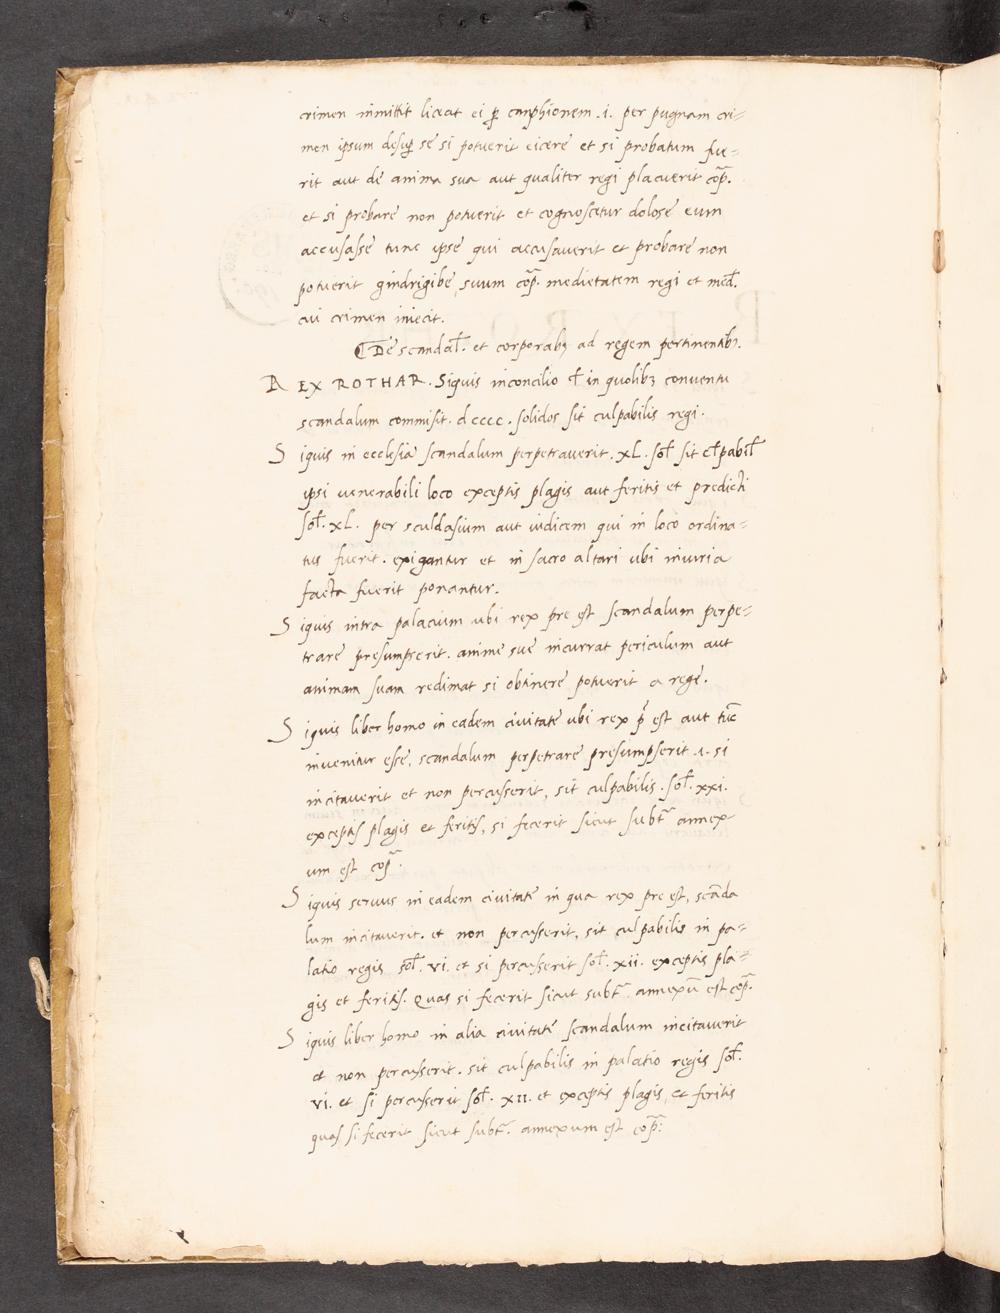 crimen inmittit liceat ei ꝑ canphionem .i. per pugnam cri=
men ipsum desuꝑ se si potuerit eicere et si probatum fue=
rit aut de anima sua aut qualiter regi placuerit cop̄.
et si probare non potuerit et cognoscatur dolose eum
accusasse tunc ipse qui accusaverit et probare non
potuerit gindrigibe, suum cop̄. medietatem regi et med̄.
cui crimen iniecit.
De scandal̄. et corporabꝫ ad regem pertinentibꝫ.
REX ROTHAR. Siquis inconcilio ł in quolibꝫ conventu
scandalum commisit. dcccc. solidos sit culpabilis regi.
Siquis in ecclesia scandalum perpetraverit. xL. sol̄ sit cl̄pabil̄
ipsi venerabili loco exceptis plagis aut feritis et predicti
sol̄. xL. per sculdasium aut iudicem qui in loco ordina=
tus fuerit. exigantur et in sacro altari ubi iniuria
facta fuerit ponantur.
Siquis intra palacium ubi rex pre est scandalum perpe=
trare presumpserit. anime sue incurrat periculum aut
animam suam redimat si obtinere potuerit a rege.
Siquis liber homo in eadem civitate ubi rex p̄ est aut tūc
invenitur esse, scandalum perpetrare presumpserit .i. si
incitaverit et non percusserit, sit culpabilis. sol̄. xxi.
exceptis plagis et feritis, si fecerit sicut subt̄ annex
um est cop̄.
Siquis servus in eadem civitate in qua rex pre est, scāda
lum incitaverit. et non percusserit, sit culpabilis in pa=
latio regis sol̄. vi. et si percusserit sol̄. xii. exceptis pla=
gis et feritis. Quas si fecerit sicut subt̄ annexū est cop̄.
Siquis liber homo in alia civitate scandalum incitaverit
et non percusserit. sit culpabilis in palatio regis sol̄.
vi. et si percusserit sol̄. XII. et exceptis plagis, et feritis
quas si fecerit sicut subt̄. annexum est cop̄.